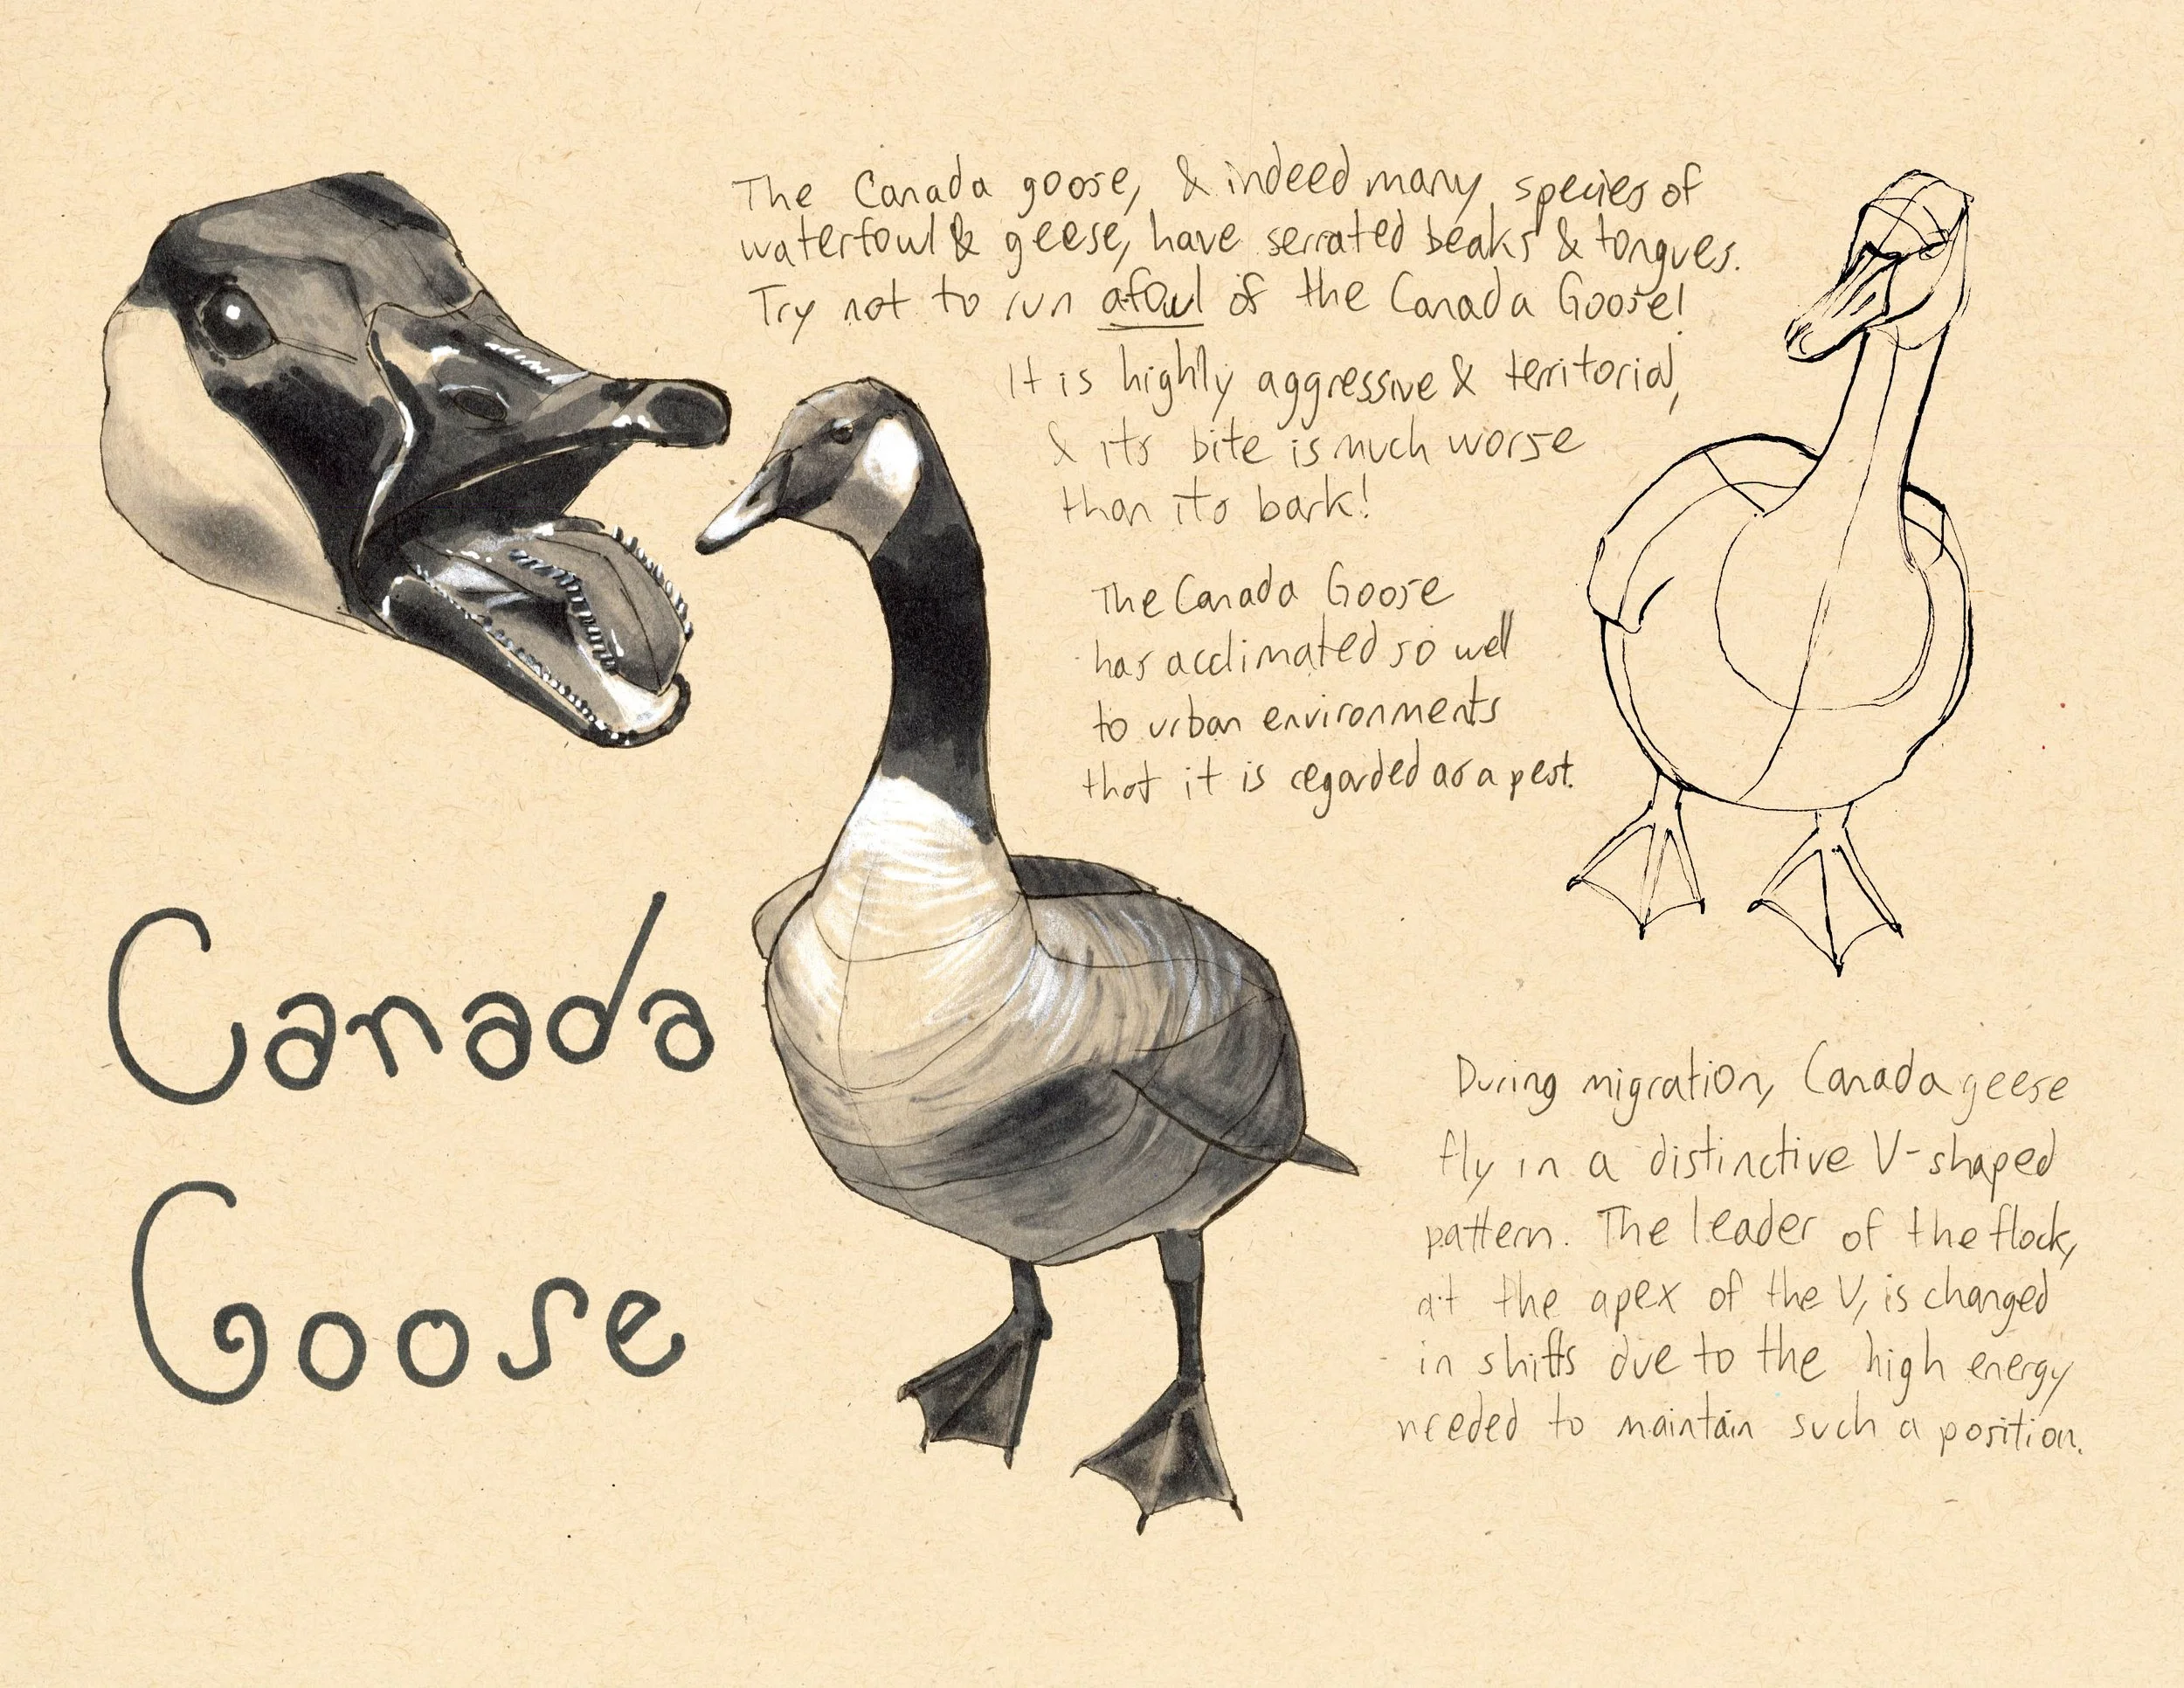 The Canada goose, & indeed many species of
waterfowl & geese, have serrated beaks & tongues.
Try not to run afowl of the Canada Goose!
It is highly aggressive & territorial,
& its bite is much worse
than its bark!
The Canada Goose
has acclimated so well
to urban environments
that it is regarded as a pest.
Canada
Goose
During migration, Canada geese
fly in a distinctive V-shaped
pattern. The leader of the flock,
at the apex of the V, is changed
in shifts due to the high energy
needed to maintain such a position.